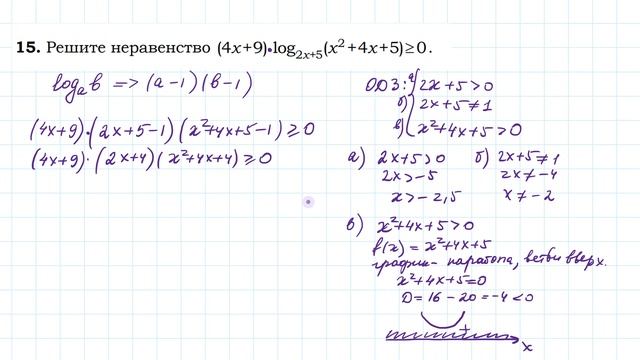 15. Решите неравенство (4x+9)·log₂ₓ₊₅(x²+4x+5)≥0.
logₐb => (a-1)(b-1)
(4x+9)·(2x+5-1)(x²+4x+5-1)≥0
(4x+9)·(2x+4)(x²+4x+4)≥0
ОДЗ: а) 2x+5>0
б) 2x+5≠1
в) x²+4x+5>0
а) 2x+5>0
2x>-5
x>-2,5
б) 2x+5≠1
2x≠-4
x≠-2
в) x²+4x+5>0
f(x)=x²+4x+5
график- парабола, ветви вверх.
x²+4x+5=0
D=16-20=-4<0
+
x